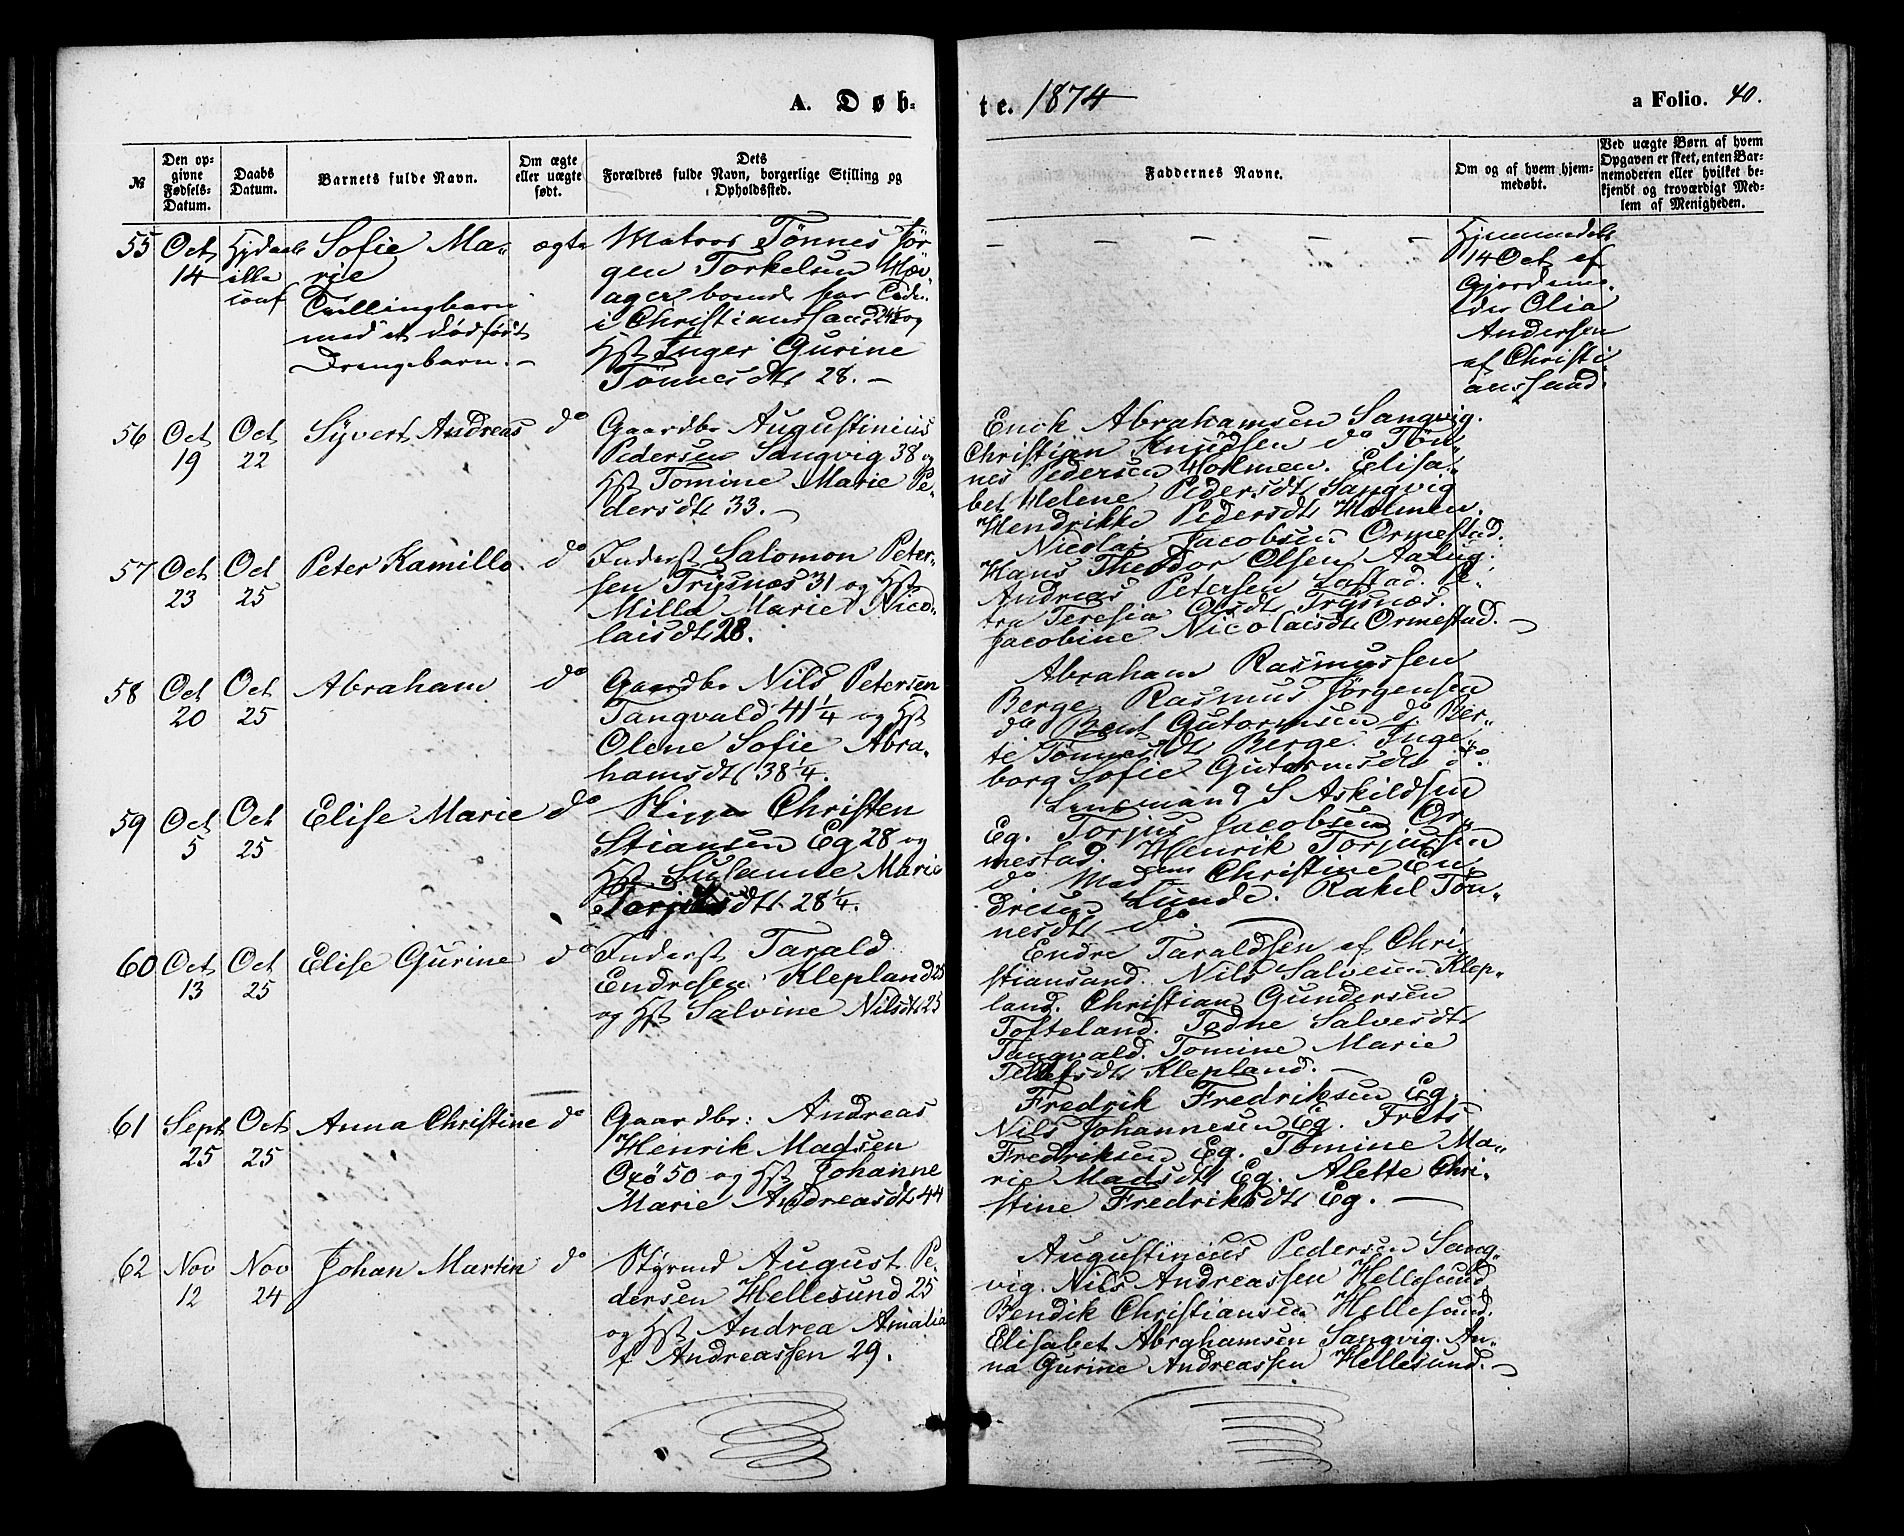 A. Døb-
te. 1874
a Folio. 40.
№
Den op-
givne
Fødsels-
Datum.
Daabs
Datum.
Barnets fulde Navn.
Om ægte
eller uægte
født.
Dets
Forældres fulde Navn, borgerlige Stilling og
Opholdssted.
Faddernes Navne.
Om og af hvem hjem-
medøbt.
Ved uægte Børn af hvem
Opgaven er skeet, enten Bar-
nemoderen eller hvilket be-
kjendt og troværdigt Med-
lem af Menigheden.
55 Oct 14
Sofie Ma-
rie
Tvillingbarn
med et dødfødt
Drengebarn. –
ægte
Matros Tönnes Jör
gen Torkelsen Höv
ager boende for Tiden
i Christianssand 24½ og
Hst Inger Gurine
Tönnesdtr 28. –
– – – – –
Hjemmedøbt
14 Oct af
Gjordemo-
der Olia
Andersen
af Christi
anssand.
56 Oct 19 Oct 22 Syvert Andreas do
Gaardbr Augustinius
Pedersen Sangvig 38 og
Hst Tomine Marie Pe-
dersdtr 33. –
Enok Abrahamsen Sangvig.
Christian Knudsen do Tön-
nes Pedersen Holmen. Elisa-
bet Helene Pedersdtr Sangvig
Hendrikke Pedersdtr Holmen.
57 Oct 23 Oct 25 Peter Kamillo. do
Inderst Salomon Peter-
sen Trysnæs 31 og Hst
Milla Marie Nico-
laisdtr 28.
Nicolai Jacobsen Ormestad.
Hans Theodor Olsen Aavig.
Andreas Petersen Lastad. Pe-
tra Teresia Olsdtr Trysnæs.
Jacobine Nicolaisdtr Ormestad. –
58 Oct 20 Oct 25 Abraham do
Gaardbr Nils Petersen
Tangvald 41¼ og Hst
Olene Sofie Abra-
hamsdtr 38¼.
Abraham Rasmussen
Berge Rasmus Jörgensen
do Bent Gutormsen do. Ber-
te Tönnesdtr Berge. Inge-
borg Sofie Gutormsdtr do.
59 Oct 5 Oct 25 Elise Marie do
Skipper Christen
Stiansen Eg 28 og
Hst Susanne Marie
Torjusdtr 28¼.
Lensmand S Askildsen
Eg. Torjus Jacobsen Or-
mestad. Henrik Torjussen
do Madams Christine En-
dresen Lunde. Rakel Tön-
nesdtr do.
60 Oct 13 Oct 25 Elise Gurine do
Inderst Tarald
Endresen Klepland 25
og Hst Salvine Nilsdtr 25
Endre Taraldsen af Chri
stiansand. Nils Salvesen Klep-
land. Christian Gundersen
Tofteland. Tedne Salvesdtr
Tangvald. Tomine Marie
Tellefsdtr Klepland. –
61 Sept 25 Oct 25 Anna Christine do
Gaardbr: Andreas
Henrik Madsen
Oxö 50 og Hst Johanne
Marie Andreasdtr 44
Fredrik Fredriksen Eg.
Nils Johannesen Eg. Frets
Fredriksen Eg. Tomine Ma-
rie Madsdtr Eg. Alette Chri-
stine Fredriksdtr Eg. –
62 Nov 12 Nov 24 Johan Martin do
Styrmd August Pe-
dersen Hellesund 25
og Hst Andrea Amalia
f Andreassen 29.
Augustinius Pedersen Sang-
vig. Nils Andreassen Hellesund
Bendik Christiansen Hellesund.
Elisabet Abrahamsen Sangvig. An-
na Gurine Andreassen Hellesund. –